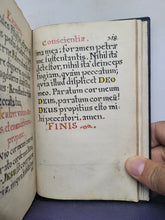 Conscientiæ.
ma mea; for amen petræ
me sustentantis. Nihil ita
detestor, nihil ita deinceps
fugiam, quàm peccatum,
quia illud displicet DEO
meo. Paratum cor meum
DEUS, paratum cor meũ:
DEUS propitius esto mi
hi peccatori. amen.
FINIS